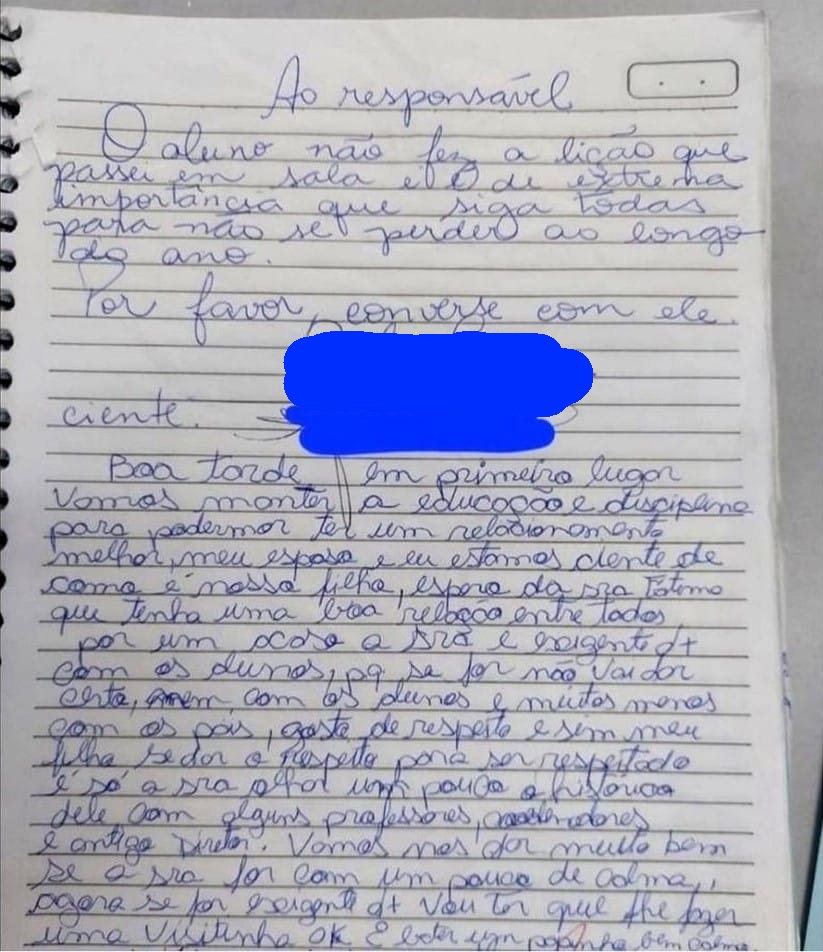 Ao responsável
O aluno não fez a lição que
passei em sala e é de extrema
importância que siga todas
para não se perder ao longo
do ano.
Por favor, converse com ele.
ciente:
Boa tarde em primeiro lugar
Vamos manter a educação e disciplina
para podermor ter um relacionamento
melhor, meu esposo e eu estamos ciente de
como é nosso filho, espero da sra Fátima
que tenha uma boa relação entre todos,
por um acaso a sra é exigente d+
com os alunos, pq se for não vai dar
certo, nem com os alunos e muitos menos
com os pais, gosto de respeito e sim meu
filho se dar o respeito para ser respeitado
é só a sra olhar um pouco a história
dele com alguns professores,
e antigo Diretor. Vamos nos dar muito bem
se a sra for com um pouco de calma,
agora se for exigente d+ Vou ter que lhe fazer
uma Visitinha OK E bater um papinha bem